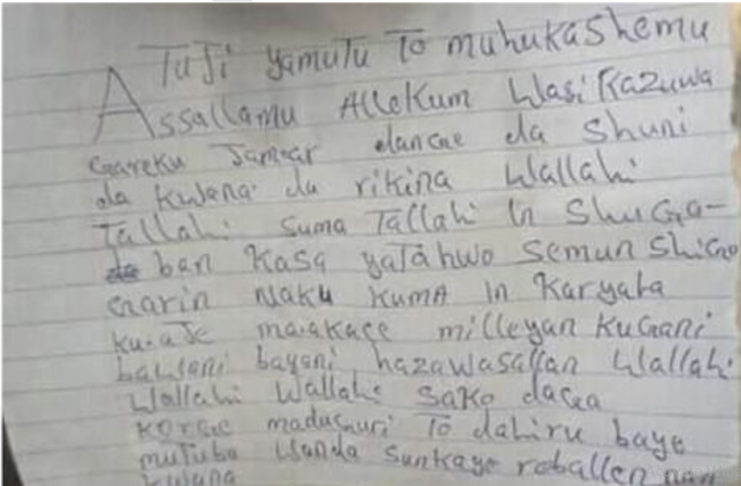 TuJi yamuTu To muhukaShemu
Assallamu AlleKum WasiKazuwa
Gareku Jamar dance da Shuni
da Kwana da rikina Wallahi
Tallahi Suma Tallahi In ShuGa-
ban Kasa yaTahwo Semun ShiGo
Garin Naku KumA In Karyata
Ku.aJe maiakace milleyan KuGani
bayani hazawasallan Wallahi
Wallahi Wallahi Sako daga
Korge maduGuri To dahiru baye
muTuba Wanda Sunkaye roballen nan
Kwana